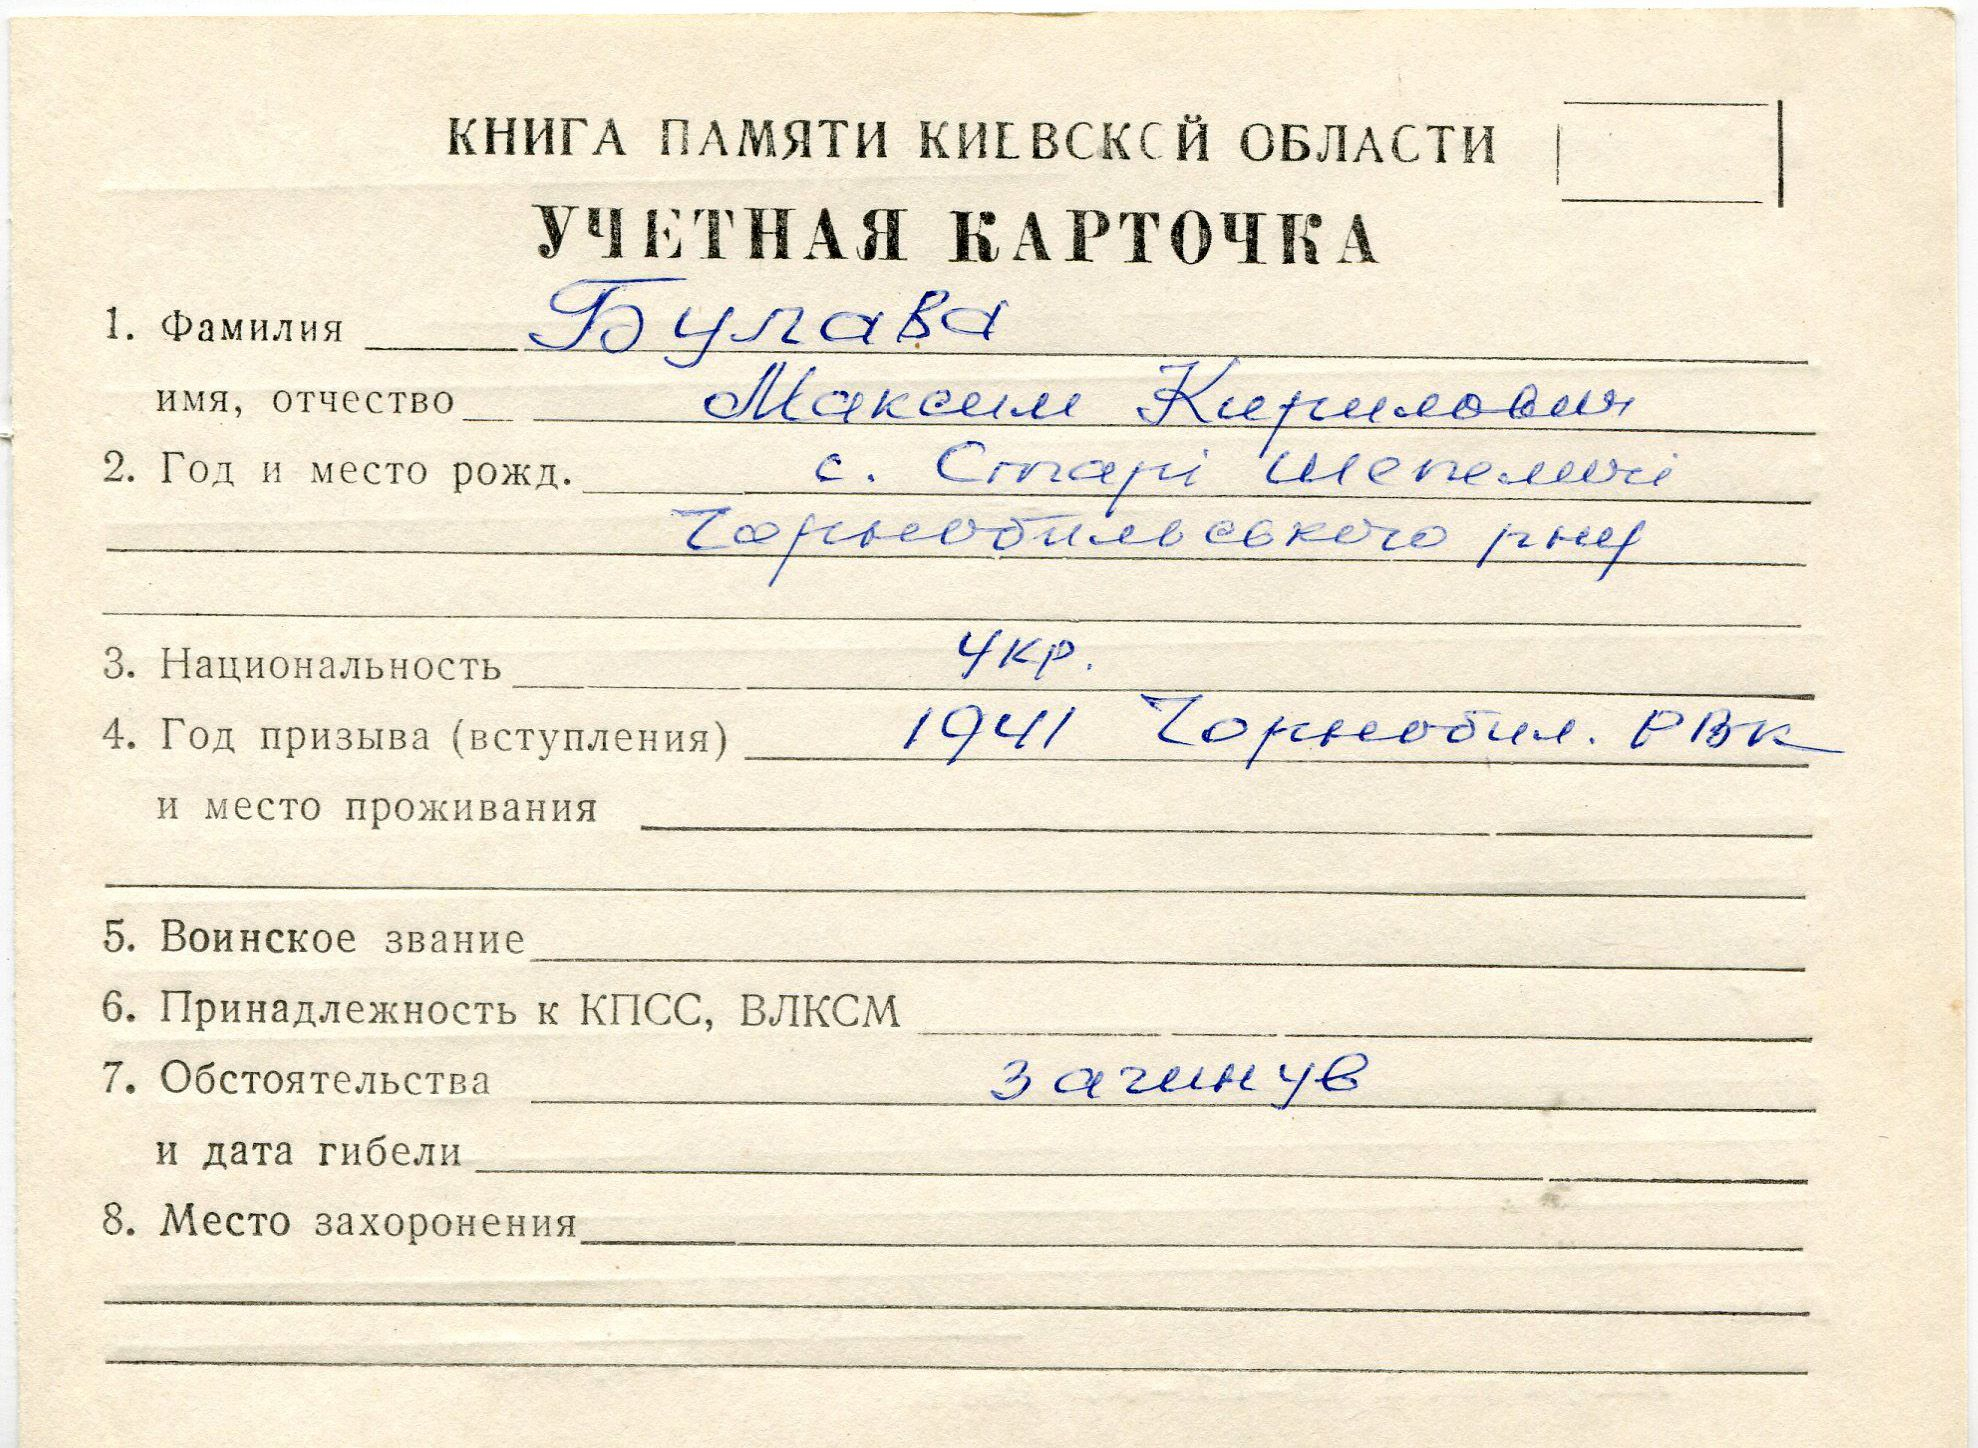 КНИГА ПАМЯТИ КИЕВСКОЙ ОБЛАСТИ
УЧЕТНАЯ КАРТОЧКА
1. Фамилия Булава
имя, отчество Максим Кирилович
2. Год и место рожд. с. Старі Шепеличі
Чорнобильського р-ну
3. Национальность укр.
4. Год призыва (вступления) 1941 Чорнобил. РВК
и место проживания
5. Воинское звание
6. Принадлежность к КПСС, ВЛКСМ
7. Обстоятельства загинув
и дата гибели
8. Место захоронения